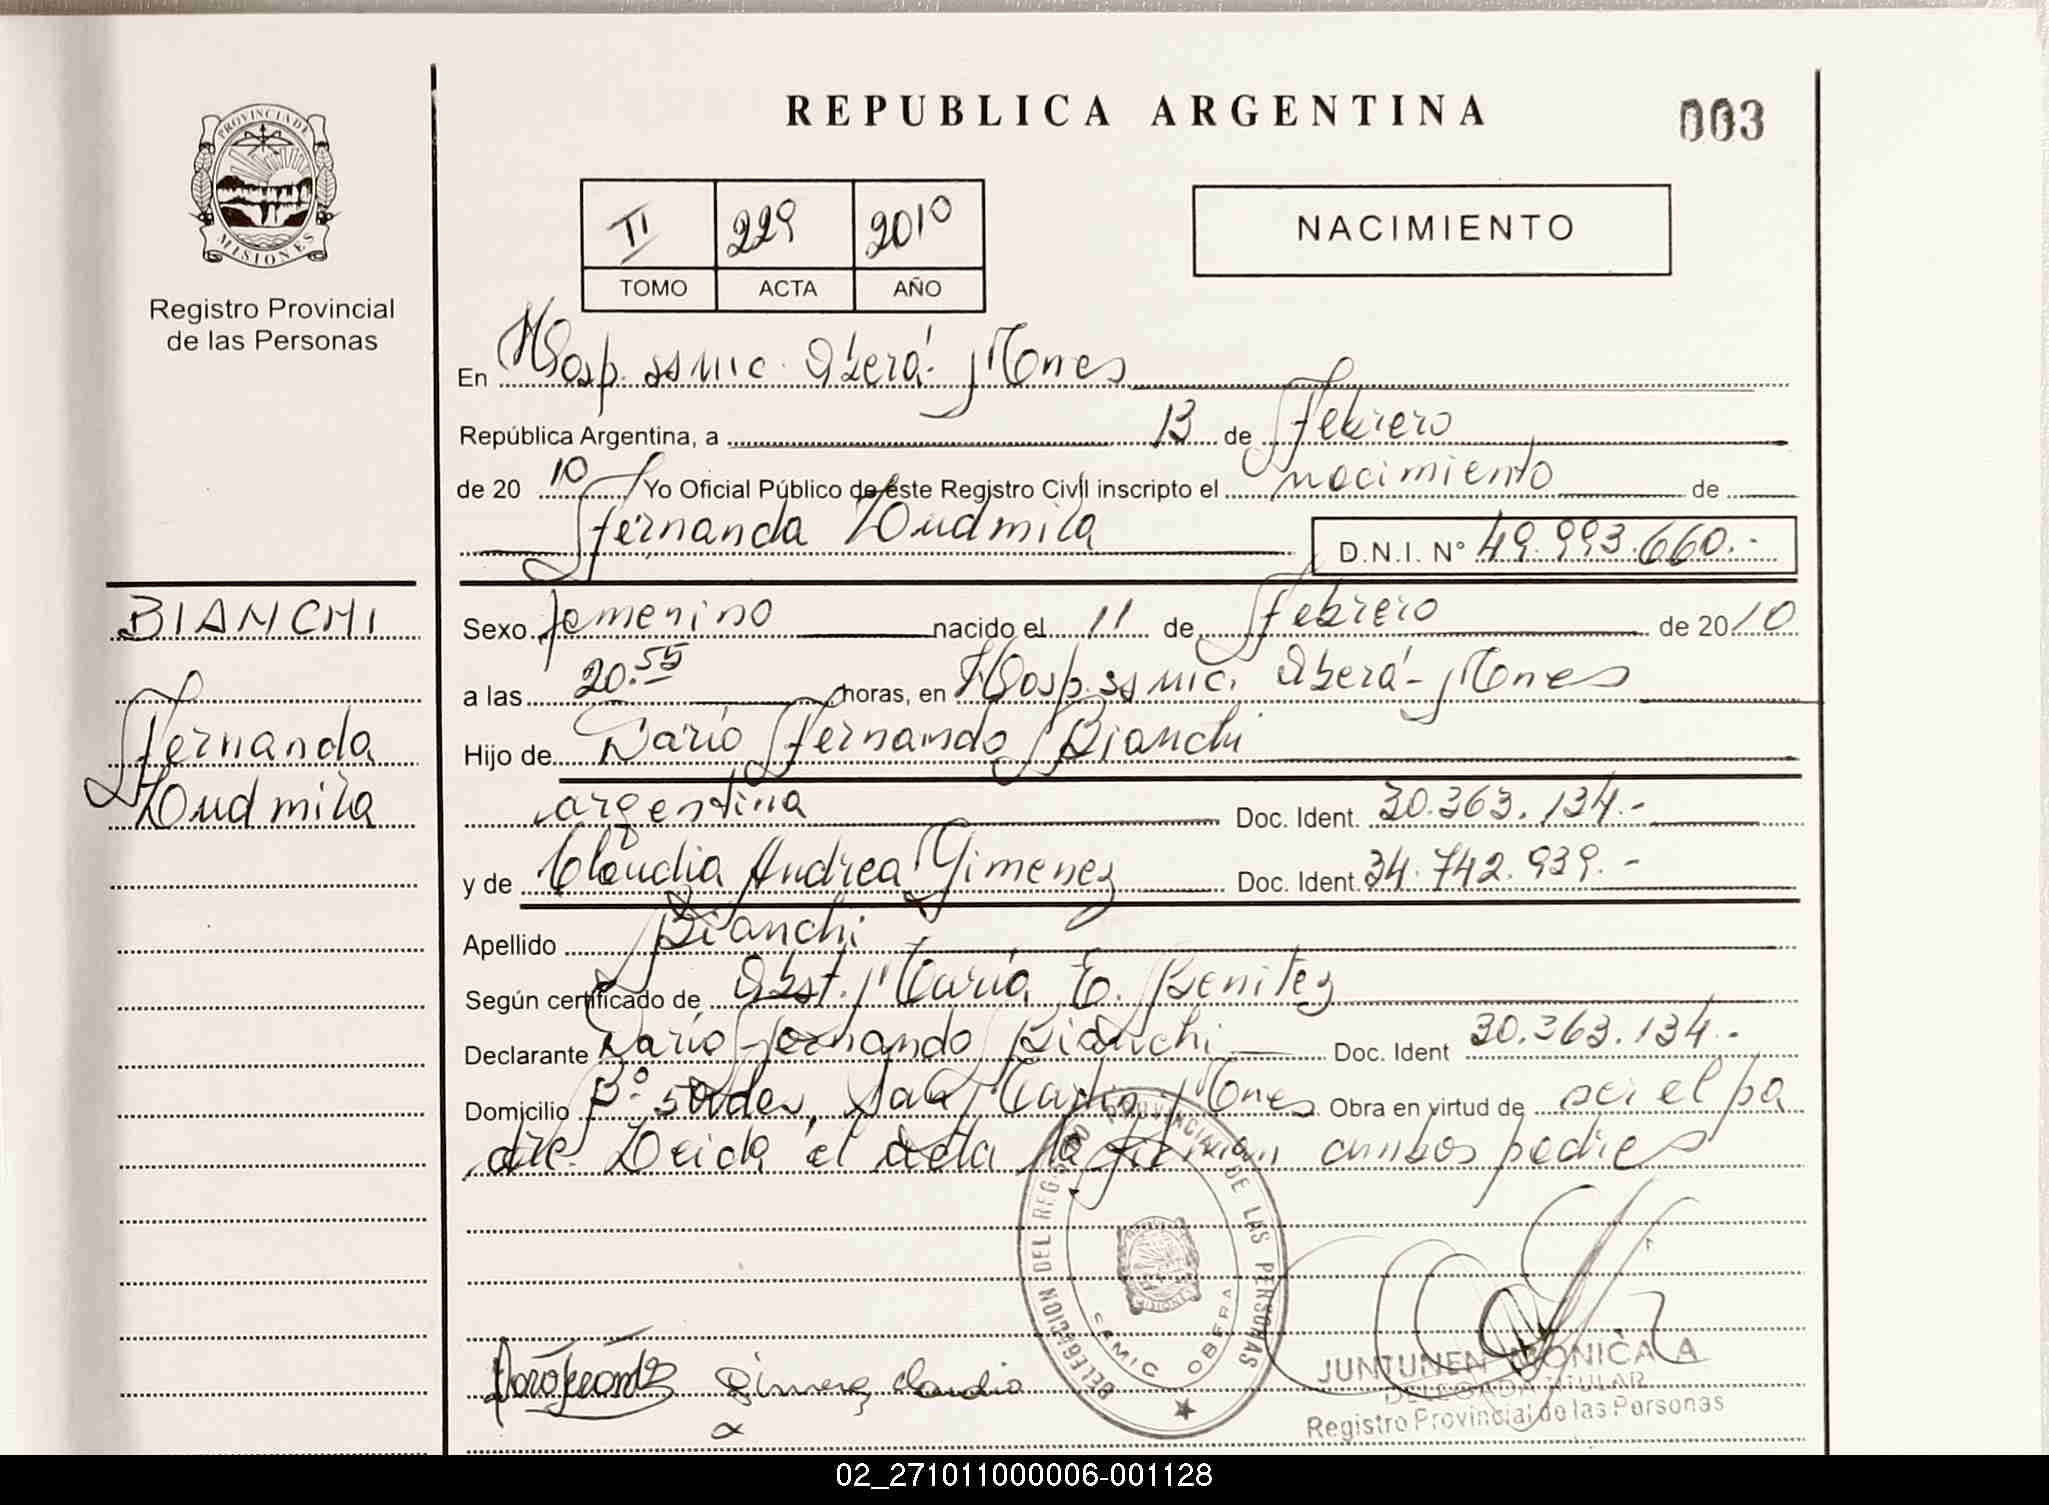 REPUBLICA ARGENTINA
003
PROVINCIA DE
MISIONES
Registro Provincial
de las Personas
TI 229 2010
TOMO ACTA AÑO
NACIMIENTO
En Hosp. ss mic. Oberá- Mones
República Argentina, a 13 de Febrero
de 20 10 Yo Oficial Público de este Registro Civil inscripto el nacimiento de
Fernanda Ludmila D.N.I. Nº 49.993.660.-
BIANCHI
Fernanda
Ludmila
Sexo femenino nacido el 11 de febrero de 2010
a las 20.55 horas, en Hosp. ss mic. Oberá- Mones
Hijo de Darío Fernando Bianchi
argentina Doc. Ident. 30.363.134.-
y de Claudia Andrea Gimenez Doc. Ident. 34.742.939.-
Apellido Bianchi
Según certificado de Obst. María E. Benitez
Declarante Darío Fernando Bianchi Doc. Ident 30.363.134.-
Domicilio Bº San Martin Mones Obra en virtud de ser el pa
dre. Leida el acta la firman ambos padres
DELEGACION DEL REGISTRO PROVINCIAL DE LAS PERSONAS
SAMIC OBERA
MISIONES
Gimenez Claudia
JUNTUNEN MONICA A
DELEGADA TITULAR
Registro Provincial de las Personas
02_271011000006-001128